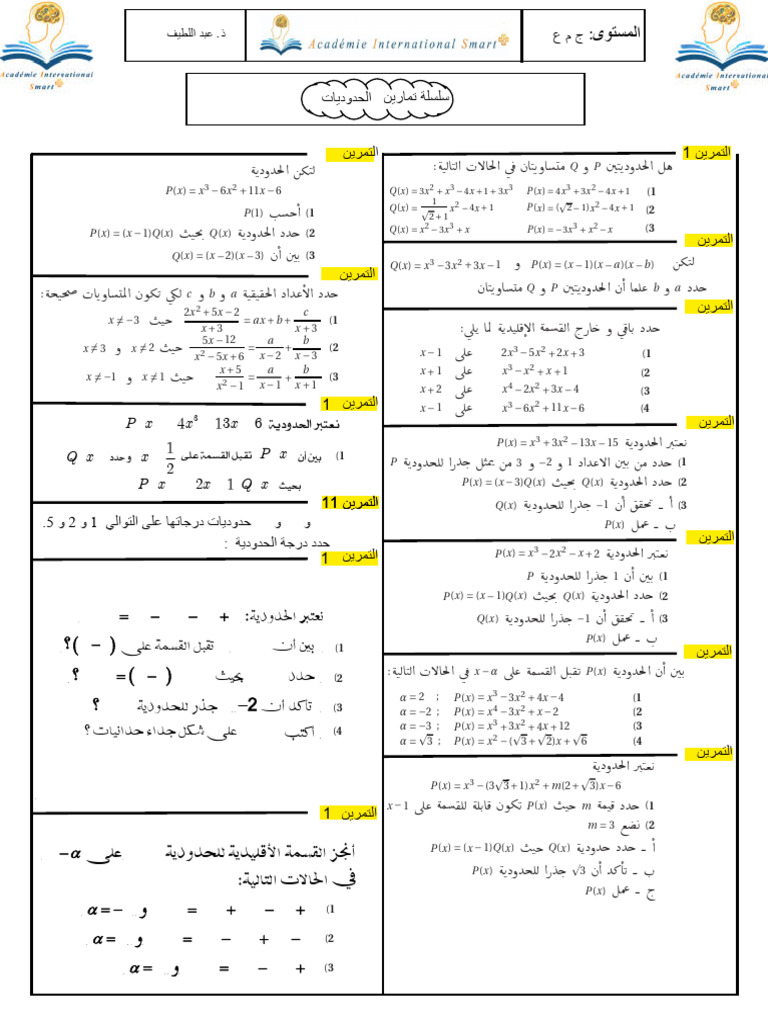 Académie International Smart
ذ. عبد اللطيف
Académie International Smart
المستوى: ج م ع
Académie International Smart
سلسلة تمارين الحدوديات
التمرين 1
هل الحدوديتين P و Q متساويتان في الحالات التالية:
1) P(x) = 4x³+3x²−4x+1 Q(x) = 3x²+x³−4x+1+3x³
2) P(x) = (√2−1)x²−4x+1 Q(x) = 1/(√2+1) x²−4x+1
3) P(x) = −3x³+x²−x Q(x) = x²−3x³+x
التمرين
لتكن P(x) = (x−1)(x−a)(x−b) و Q(x) = x³−3x²+3x−1
حدد a و b علما أن الحدوديتين P و Q متساويتان
التمرين
حدد باقي و خارج القسمة الإقليدية لما يلي:
1) 2x³−5x²+2x+3 على x−1
2) x³−x²+x+1 على x+1
3) x⁴−2x²+3x−4 على x+2
4) x³−6x²+11x−6 على x−1
التمرين
نعتبر الحدودية P(x) = x³+3x²−13x−15
1) حدد من بين الاعداد 1 و −2 و 3 من يمثل جذرا للحدودية P
2) حدد الحدودية Q(x) بحيث P(x) = (x−3)Q(x)
3) أ ـ تحقق أن −1 جذرا للحدودية Q(x)
ب ـ عمل P(x)
التمرين
نعتبر الحدودية P(x) = x³−2x²−x+2
1) بين أن 1 جذرا للحدودية P
2) حدد الحدودية Q(x) بحيث P(x) = (x−1)Q(x)
3) أ ـ تحقق أن −1 جذرا للحدودية Q(x)
ب ـ عمل P(x)
التمرين
بين أن الحدودية P(x) تقبل القسمة على x−α في الحالات التالية:
1) α = 2 ; P(x) = x³−3x²+4x−4
2) α = −2 ; P(x) = x⁴−3x²+x−2
3) α = −3 ; P(x) = x³+3x²+4x+12
4) α = √3 ; P(x) = x²−(√3+√2)x+√6
التمرين
نعتبر الحدودية
P(x) = x³−(3√3+1)x²+m(2+√3)x−6
1) حدد قيمة m حيث P(x) تكون قابلة للقسمة على x−1
2) نضع m = 3
أ ـ حدد حدودية Q(x) حيث P(x) = (x−1)Q(x)
ب ـ تأكد أن √3 جذرا للحدودية P(x)
ج ـ عمل P(x)
التمرين
لتكن الحدودية
P(x) = x³−6x²+11x−6
1) أحسب P(1)
2) حدد الحدودية Q(x) بحيث P(x) = (x−1)Q(x)
3) بين أن Q(x) = (x−2)(x−3)
التمرين
حدد الأعداد الحقيقية a و b و c لكي تكون المتساويات صحيحة:
1) (2x²+5x−2)/(x+3) = ax+b+c/(x+3) حيث x ≠ −3
2) (5x−12)/(x²−5x+6) = a/(x−2)+b/(x−3) حيث x ≠ 2 و x ≠ 3
3) (x+5)/(x²−1) = a/(x−1)+b/(x+1) حيث x ≠ 1 و x ≠ −1
التمرين 1
نعتبر الحدودية P x 4x³ 13x 6
1) بين أن P x تقبل القسمة على x 1/2 وحدد Q x
بحيث P x 2x 1 Q x
التمرين 11
و و حدوديات درجاتها على التوالي 1 و 2 و 5.
حدد درجة الحدودية :
التمرين 1
نعتبر الحدودية: = − − +
1) بين أن تقبل القسمة على ( − )؟
2) حدد بحيث =( − ) ؟
3) تاكد أن −2 جذر للحدودية ؟
4) اكتب على شكل جداء حدانيات؟
التمرين 1
أنجز القسمة الأقليدية للحدودية على −α
في الحالات التالية:
1) + − + = و.. α = −
2) − + − = و.. α =
3) + − = و.. α =